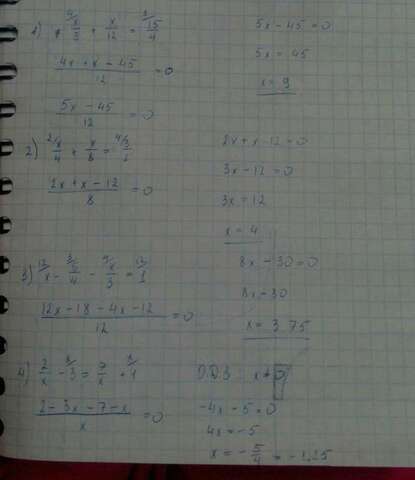 1) x/3 + x/12 = 15/4
(4x + x - 45)/12 = 0
(5x - 45)/12 = 0
5x - 45 = 0
5x = 45
x = 9
2) x/4 + x/8 = 3/2
(2x + x - 12)/8 = 0
2x + x - 12 = 0
3x - 12 = 0
3x = 12
x = 4
3) x - /4 - x/3 = 1
(12x - 18 - 4x - 12)/12 = 0
8x - 30 = 0
8x = 30
x = 3.75
4) 2/x - 3 = 7/x + 1
(2 - 3x - 7 - x)/x = 0
x ≠ 0
-4x - 5 = 0
4x = -5
x = -5/4 = -1,25